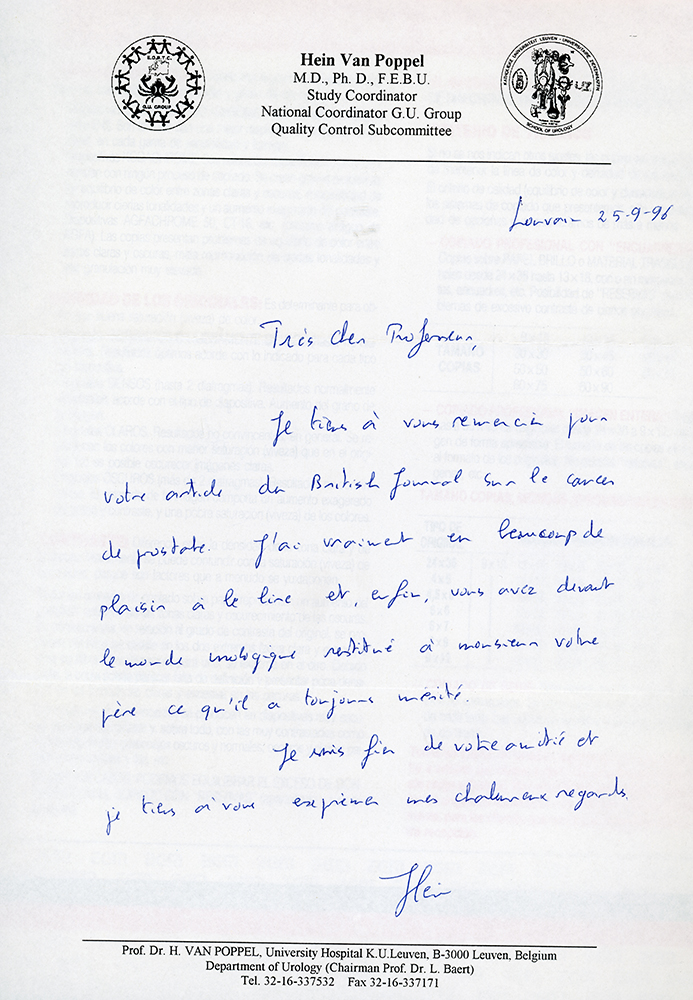 E.O.R.T.C.
G.U. GROUP
KATHOLIEKE UNIVERSITEIT LEUVEN - UNIVERSITAIRE ZIEKENHUIZEN
SCHOOL OF UROLOGY
Hein Van Poppel
M.D., Ph. D., F.E.B.U.
Study Coordinator
National Coordinator G.U. Group
Quality Control Subcommittee
Louvain 25-9-96
Très cher Professeur,
Je tiens à vous remercier pour
votre article du British Journal sur le cancer
de prostate. J'ai vraiment eu beaucoup de
plaisir à le lire et, enfin, vous avez devant
le monde urologique restitué à monsieur votre
père ce qu'il a toujours mérité.
Je suis fier de votre amitié et
je tiens à vous exprimer mes chaleureux regards.
Hein
Prof. Dr. H. VAN POPPEL, University Hospital K.U.Leuven, B-3000 Leuven, Belgium
Department of Urology (Chairman Prof. Dr. L. Baert)
Tel. 32-16-337532 Fax 32-16-337171